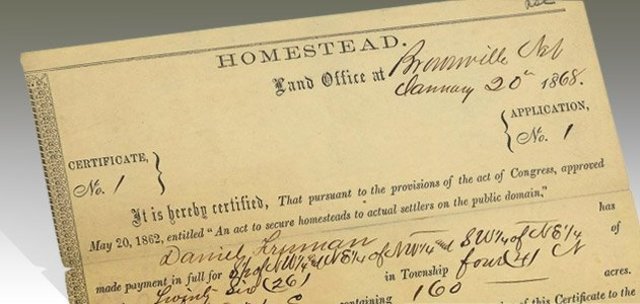 HOMESTEAD.
Land Office at Brownville Neb
January 20th 1868.
CERTIFICATE, No. 1
APPLICATION, No. 1
It is hereby certified, That pursuant to the provisions of the act of Congress, approved
May 20, 1862, entitled “An act to secure homesteads to actual settlers on the public domain,”
Daniel Freeman has
made payment in full for S½ of NW¼ and NE¼ of NW¼ and SW¼ of NE¼
Twenty Six (26) in Township four (4) N
containing 160 acres.
of this Certificate to the